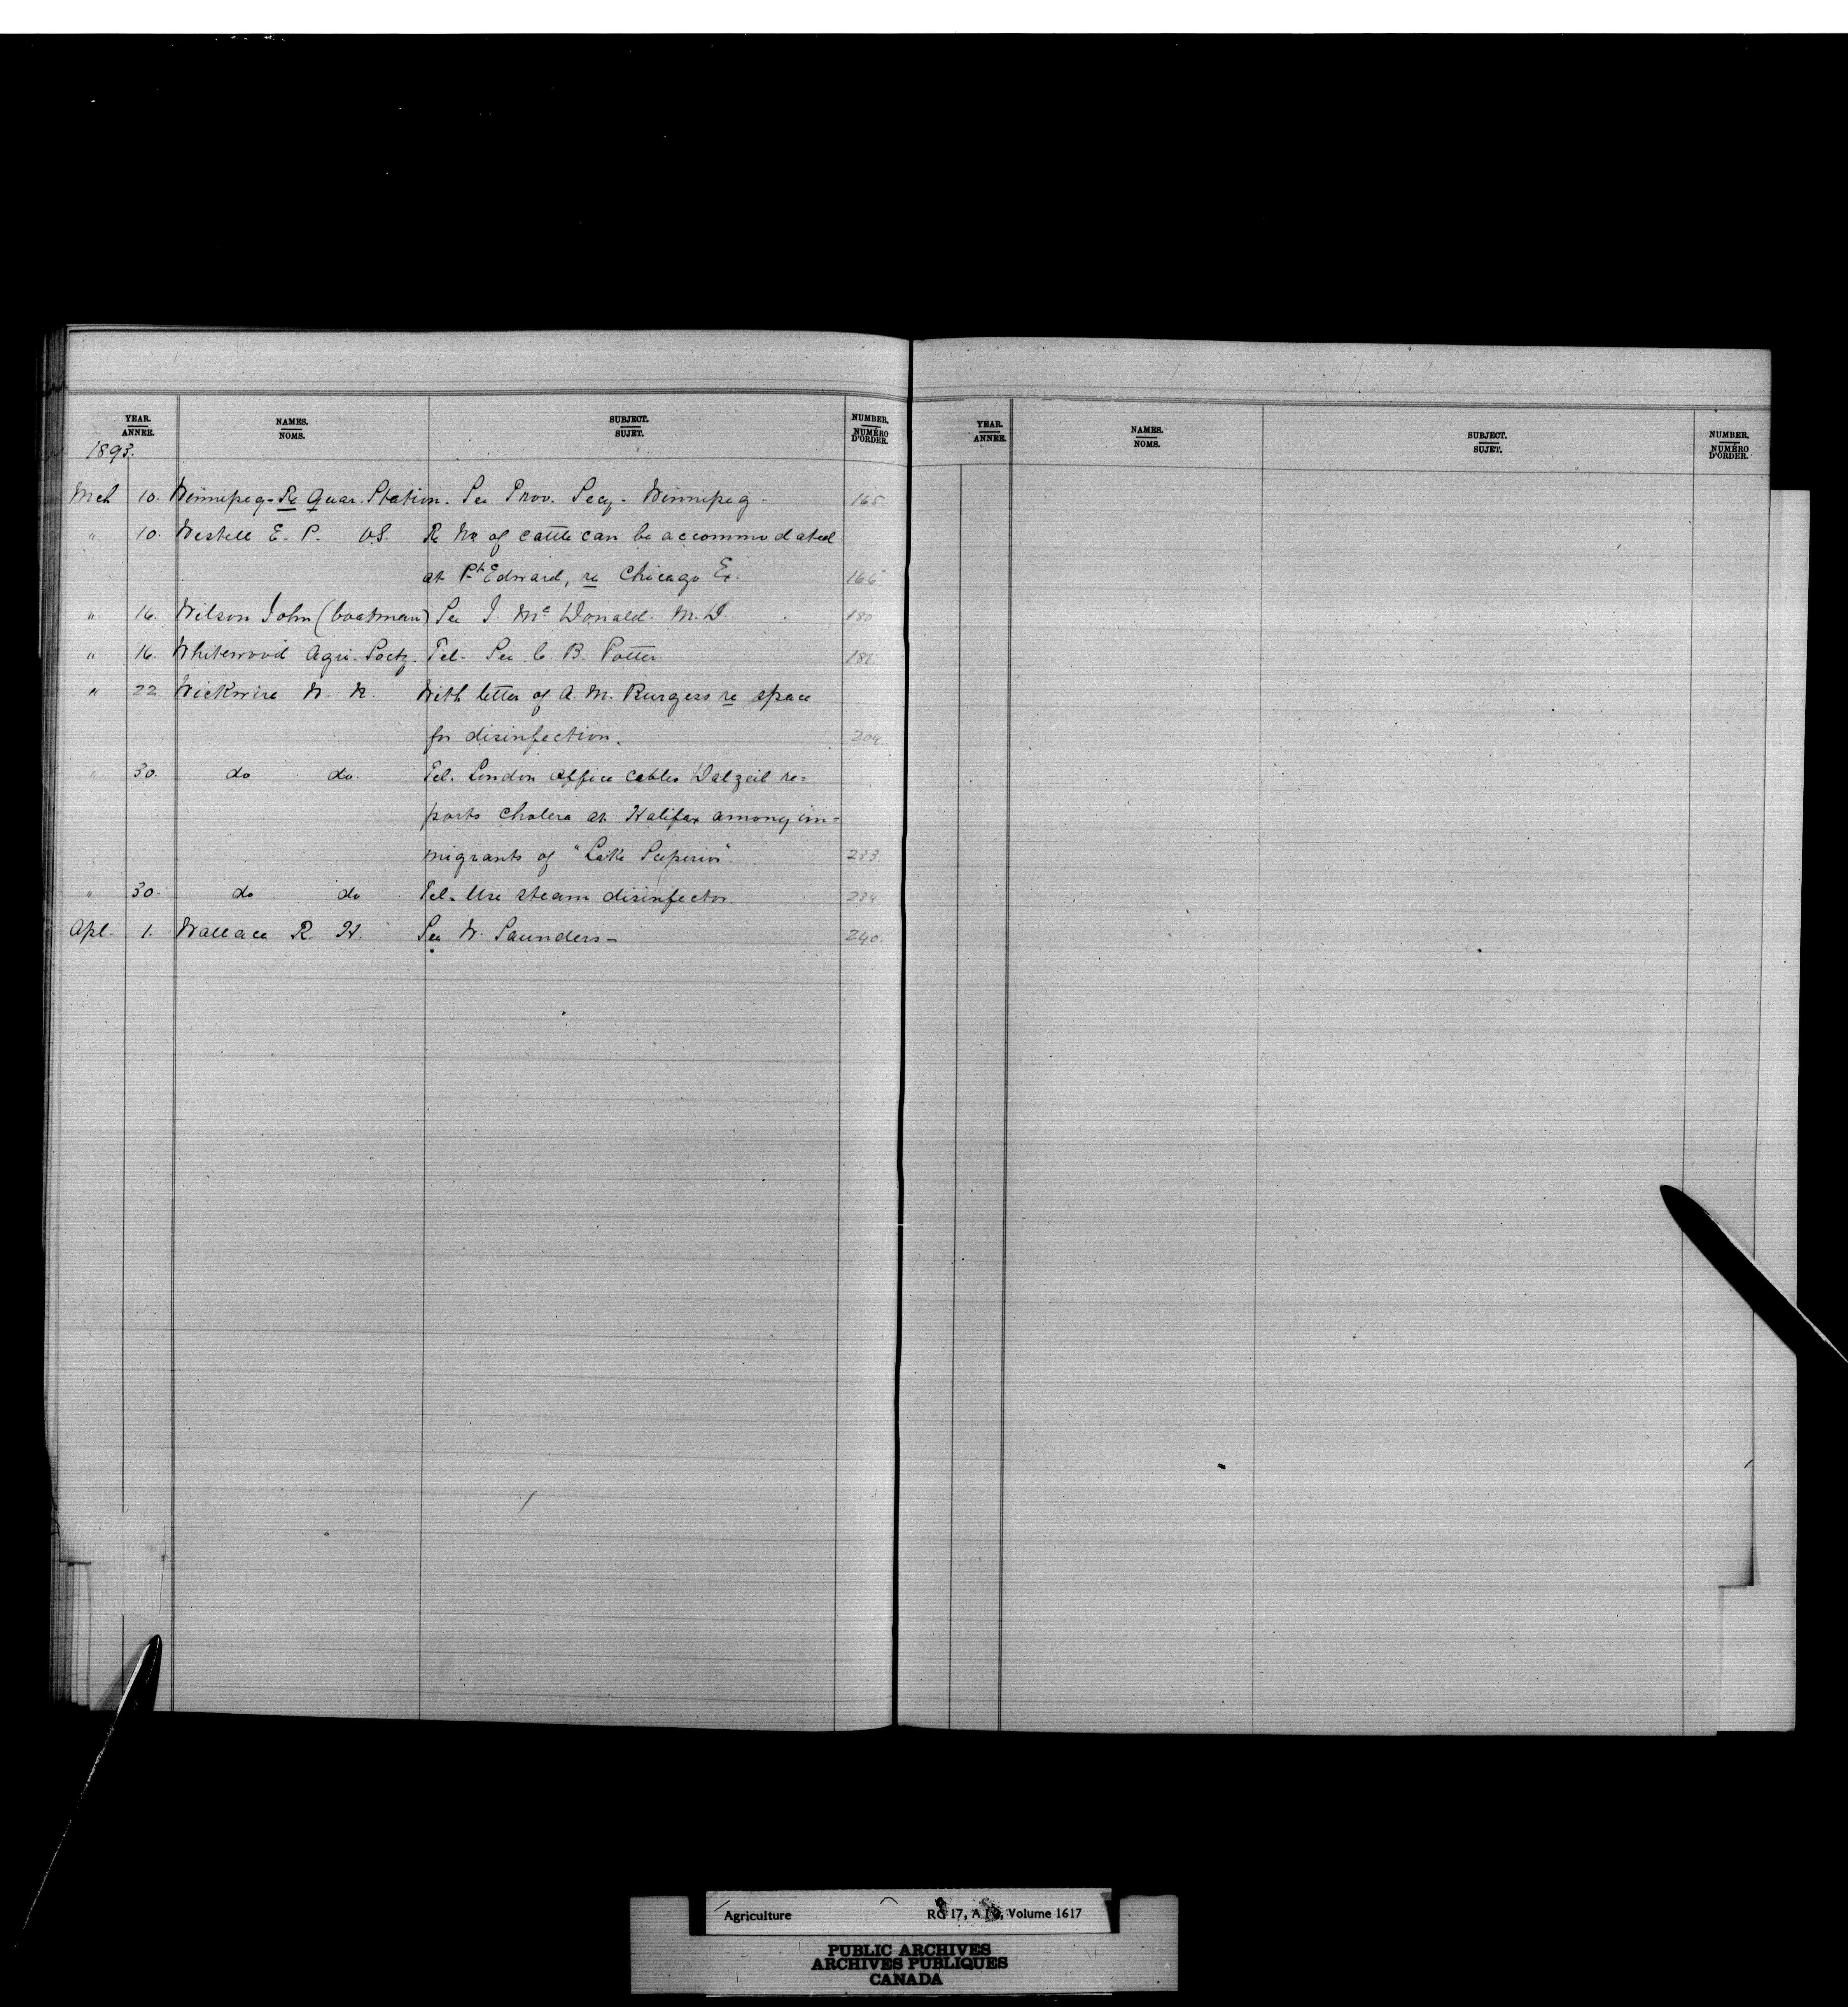 YEAR. NAMES. SUBJECT. NUMBER.
ANNEE. NOMS. SUJET. NUMÉRO D'ORDER.
1893.
Mch 10. Winnipeg - Re Quar. Station. See Prov. Secy - Winnipeg - 165
" 10. Westell E. P. V.S. Re No of cattle can be accommodated
at Pt Edward, re Chicago Ex. 166
" 16. Wilson John (boatman) See J. Mc Donald. M.D. 180
" 16. Whitewood Agri. Socty. Tel. See C. B. Potter. 181
" 22 Wickwire W. N. With letter of A. M. Burgess re space
for disinfection. 204
" 30. do do. Tel. London Office cables Dalzeil re=
ports cholera at Halifax among im=
migrants of "Lake Superior" 233.
" 30- do do Tel. Use steam disinfector. 234
Apl. 1. Wallace R. H. See W. Saunders - 240.
YEAR. NAMES. SUBJECT. NUMBER.
ANNEE. NOMS. SUJET. NUMÉRO D'ORDER.
Agriculture RG 17, A I, Volume 1617
PUBLIC ARCHIVES
ARCHIVES PUBLIQUES
CANADA